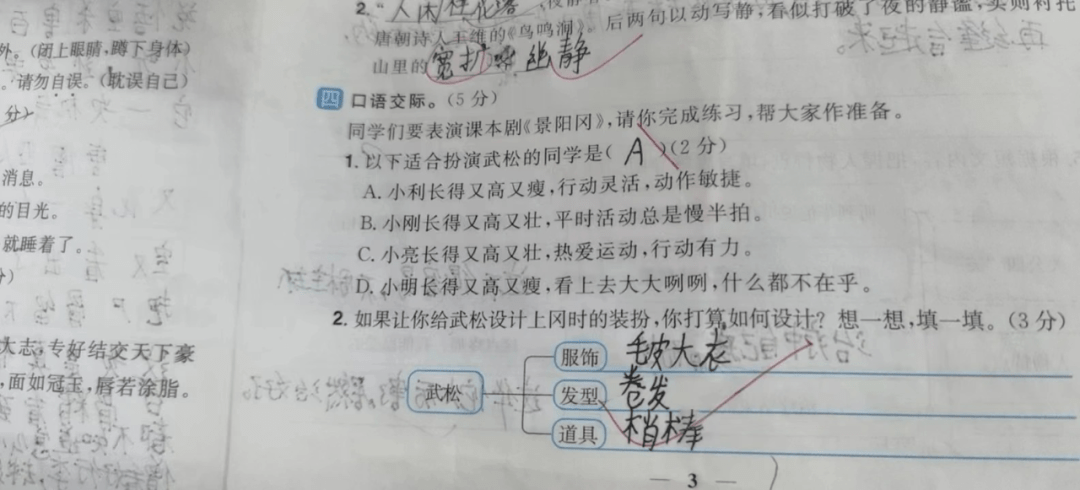 外。(闭上眼睛,蹲下身体)
。请勿自误。(耽误自己)
分)
消息。
的目光。
就睡着了。
大志,专好结交天下豪
,面如冠玉,唇若涂脂。
2.“人闲桂花落
唐朝诗人王维的《鸟鸣涧》。后两句以动写静,看似打破了夜的静谧,实则衬托
山里的 宽扩 幽静
四 口语交际。(5分)
同学们要表演课本剧《景阳冈》,请你完成练习,帮大家作准备。
1.以下适合扮演武松的同学是( A )(2分)
A.小利长得又高又瘦,行动灵活,动作敏捷。
B.小刚长得又高又壮,平时活动总是慢半拍。
C.小亮长得又高又壮,热爱运动,行动有力。
D.小明长得又高又瘦,看上去大大咧咧,什么都不在乎。
2.如果让你给武松设计上冈时的装扮,你打算如何设计?想一想,填一填。(3分)
服饰 皮大衣
武松 发型 卷发
道具 梢棒
— 3 —